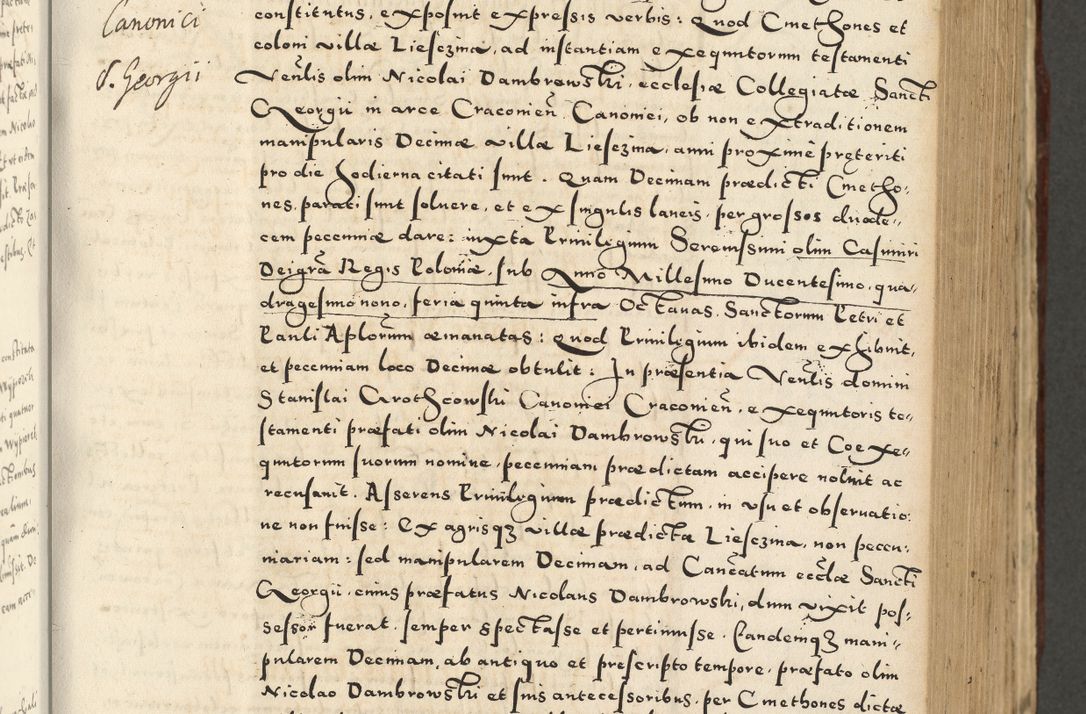 Canonici
S. Georgii
constitutus, exposuit expressis verbis: Quod Cmethones et
coloni villæ Liesezina, ad instantiam exequutorum testamenti
Venlis olim Nicolai Dambrowski, ecclesiæ Collegiatæ Sancti
Georgii in arce Craconien Canonici, ob non extraditionem
manipularis Decimæ villæ Liesezina, anni proxime præteriti
pro die hodierna citati sunt. Quam Decimam prædicti Cmetho-
nes, parati sunt soluere, et ex singulis laneis, per grossos duode-
cem pecuniæ dare: iuxta Priuilegium Serenissimi olim Casimiri
Dei gra Regis Poloniæ, sub Anno Millesimo Ducentesimo, qua-
dragesimo nono, feria quinta infra Octauas Sanctorum Petri et
Pauli Aplorum æmanatas: quod Priuilegium ibidem exhibuit,
et pecuniam loco Decimæ obtulit: In præsentia Venlis domini
Stanislai Grothcowski Canonici Craconien, exequutoris te-
stamenti præfati olim Nicolai Dambrowski, qui suo et Coexe-
quutorum suorum nomine, pecuniam prædictam accipere noluit ac
recusauit. Asserens Priuilegium prædictum, in vsu et obseruatio-
ne non fuisse: Ex agrisqʒ villæ prædicta Liesezina, non pecu-
niariam: sed manipularem Decimam, ad Cancatum ecclæ Sancti
Georgii, cuius præfatus Nicolaus Dambrowski, dum vixit pos-
sessor fuerat, semper spectasse et pertinuisse. Eandemqʒ mani-
pularem Decimam, ab antiquo et præscripto tempore, præfato olim
Nicolao Dambrowski et suis antecessoribus, per Cmethones dictæ